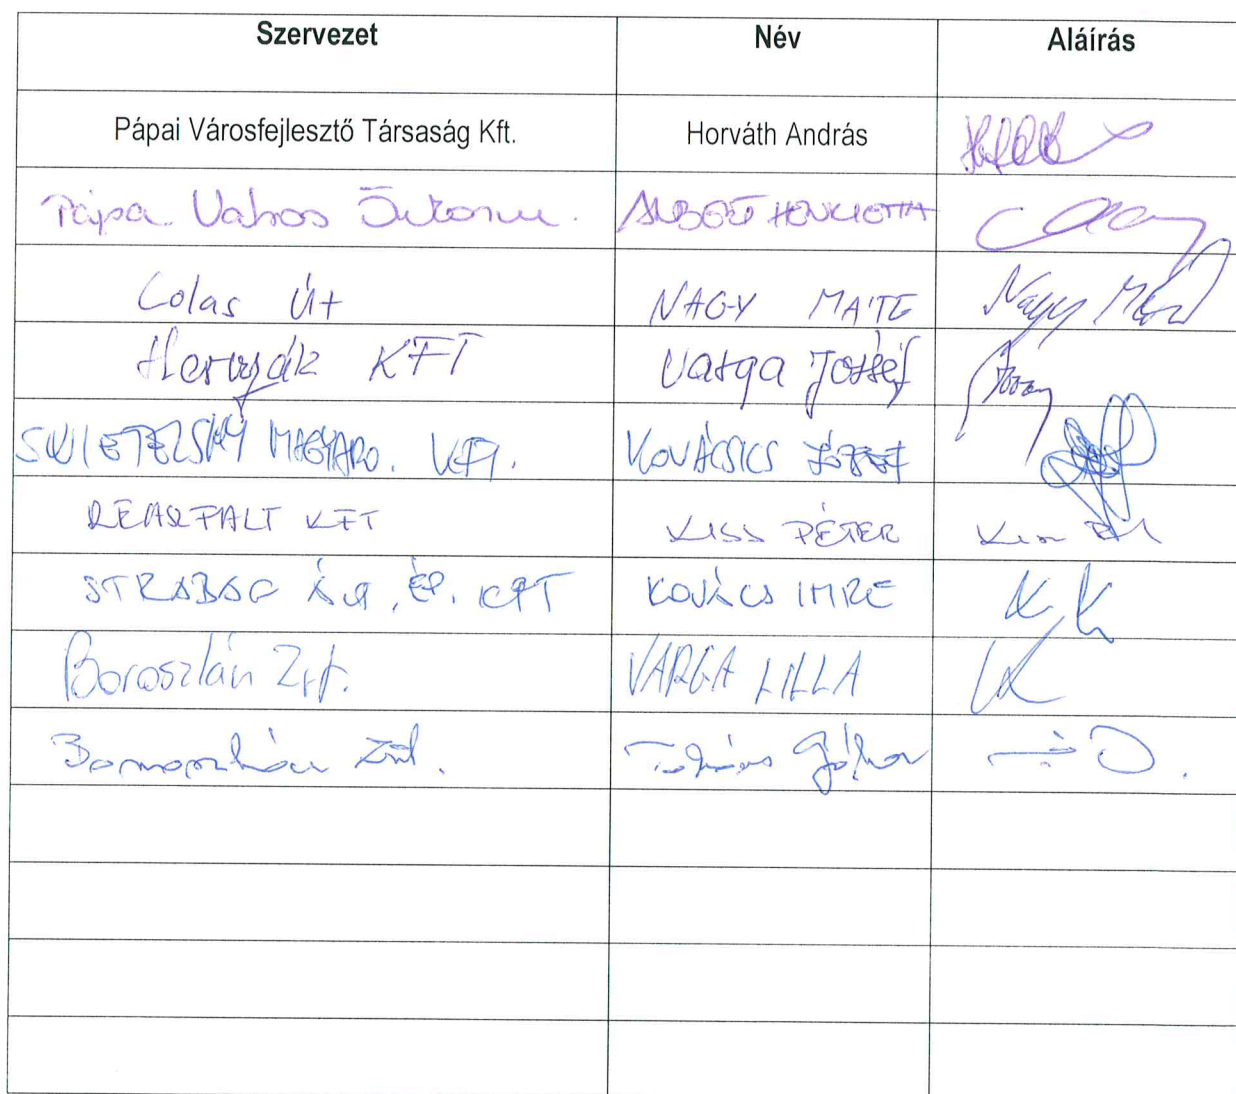 Szervezet Név Aláírás
Pápai Városfejlesztő Társaság Kft. Horváth András
Pápa Város Önkorm. HENRIETTA
Colas Út NAGY MÁTÉ Nagy Máté
KFT Varga József
SWIETELSKY MAGYARO. KFT. KOVÁCSICS JÓZSEF
REASZFALT KFT KISS PÉTER
STRABAG ÁLT. ÉP. KFT KOVÁCS IMRE
Boroszlán Zrt. VARGA LILLA
Zrt. Gábor